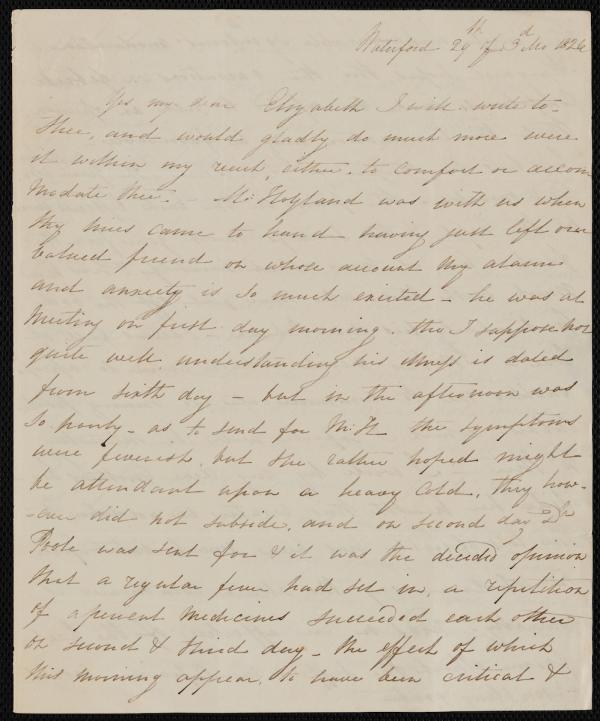 Waterford 29th of 3d Mo 1826
Yes my dear Elizabeth I will write to
thee, and would gladly do much more were
it within my reach, either to comfort or accom
modate thee. - M: Hoyland was with us when
thy lines came to hand having just left our
valued friend on whose account thy alarm
and anxiety is so much excited - he was at
Meeting on first day morning. tho I suppose not
quite well, understanding his illness is dated
from sixth day - but in the afternoon was
so poorly - as to send for M:H the symptoms
were feverish, but she rather hoped might
be attendant upon a heavy cold, they how-
-ever did not subside, and on second day Dr
Poole was sent for & it was the decided opinion
that a regular fever had set in, a repetition
of aperient Medicines succeeded each other
on second & third day - the effect of which
this morning appear, to have been critical &